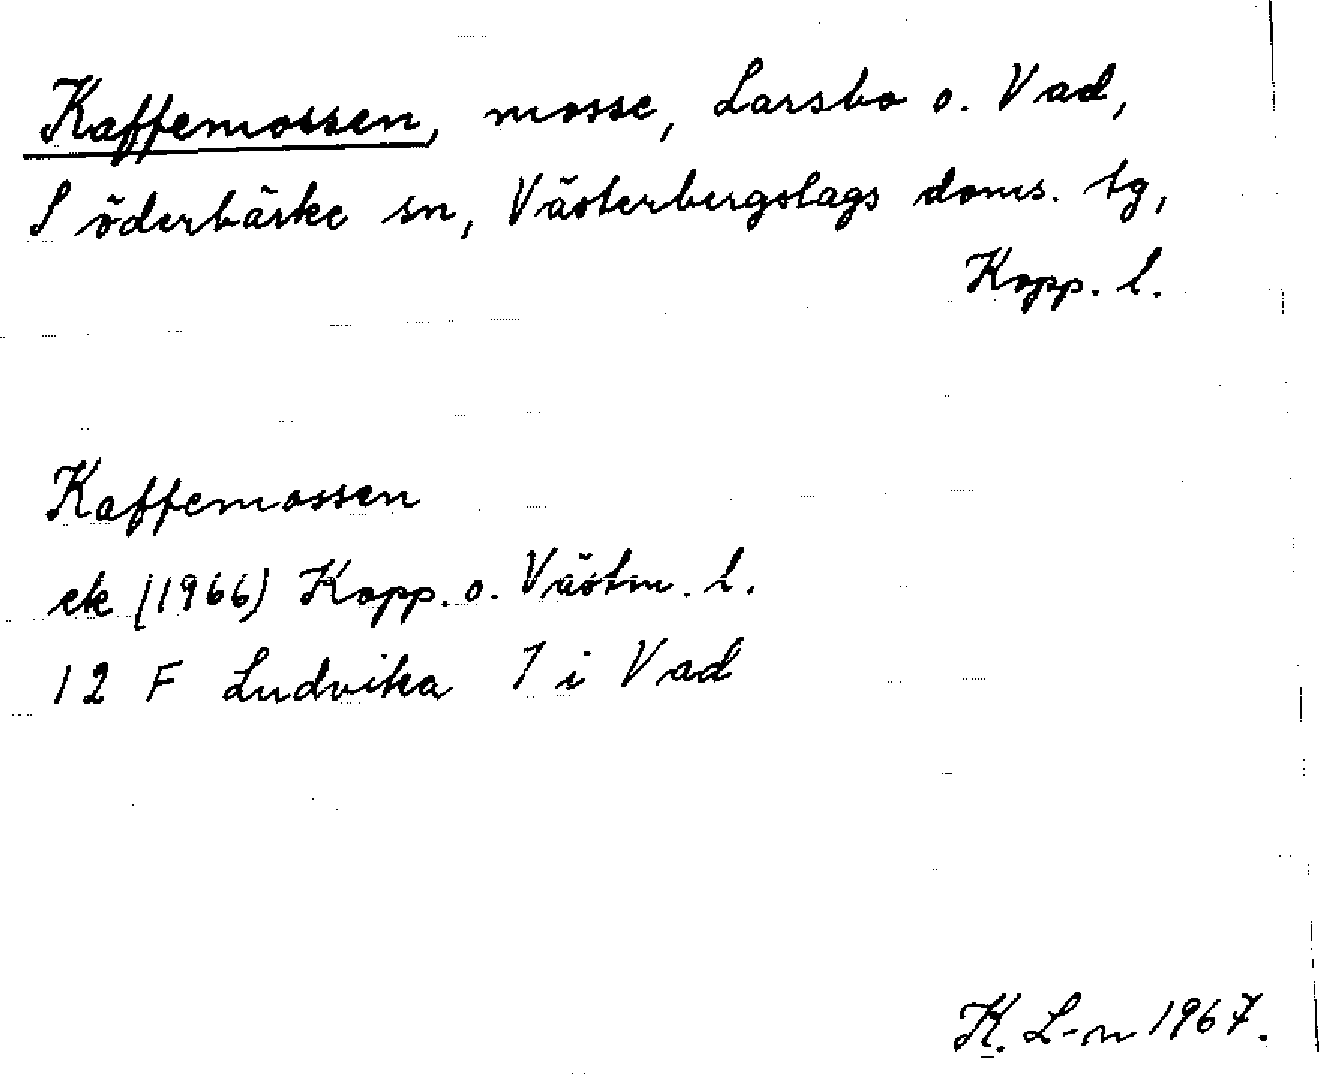 Kaffemossen, mosse, Larsbo o. Vad,
Söderbärke sn, Västerbergslags doms. tg,
Kopp. l.
Kaffemossen
ek (1966) Kopp. o. Västm. l.
12 F Ludvika 7 i Vad
K. L-n 1967.